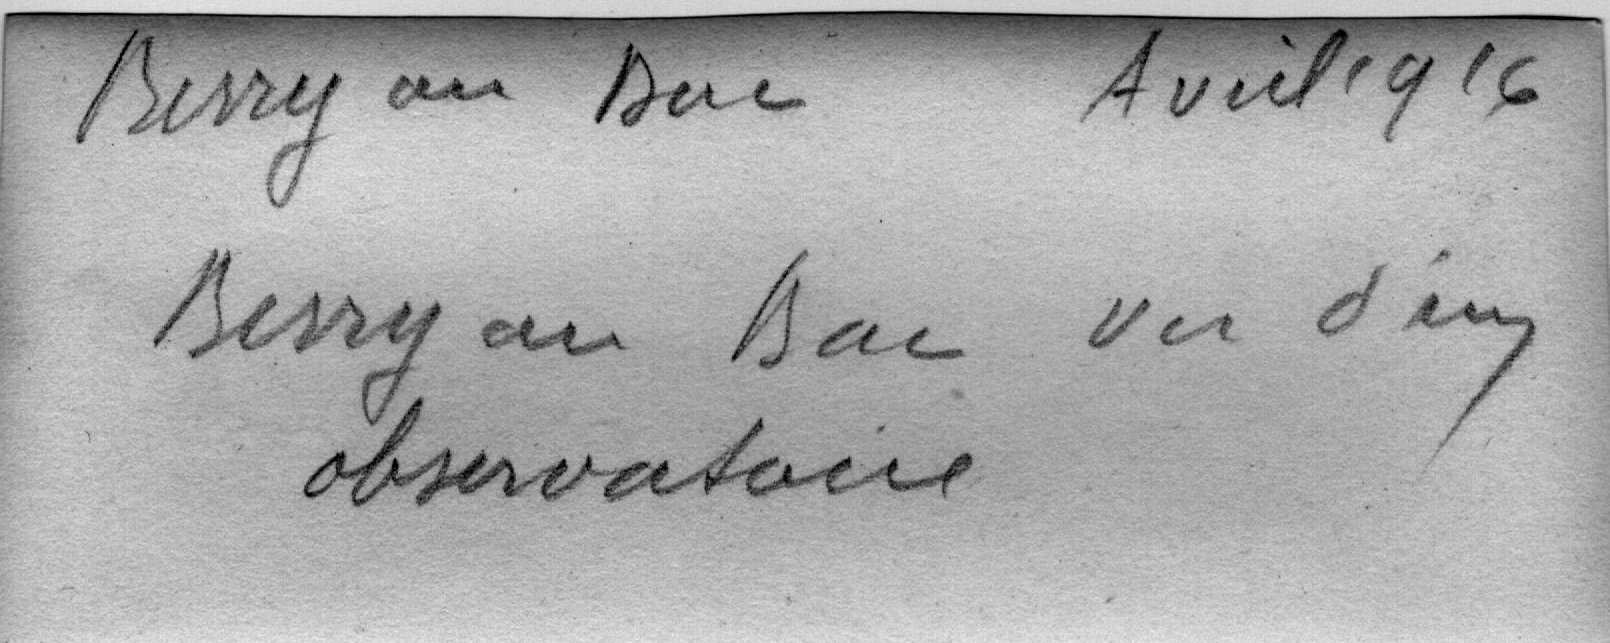 Berry au Bac Avril 1916
Berry au Bac vu d'un
observatoire